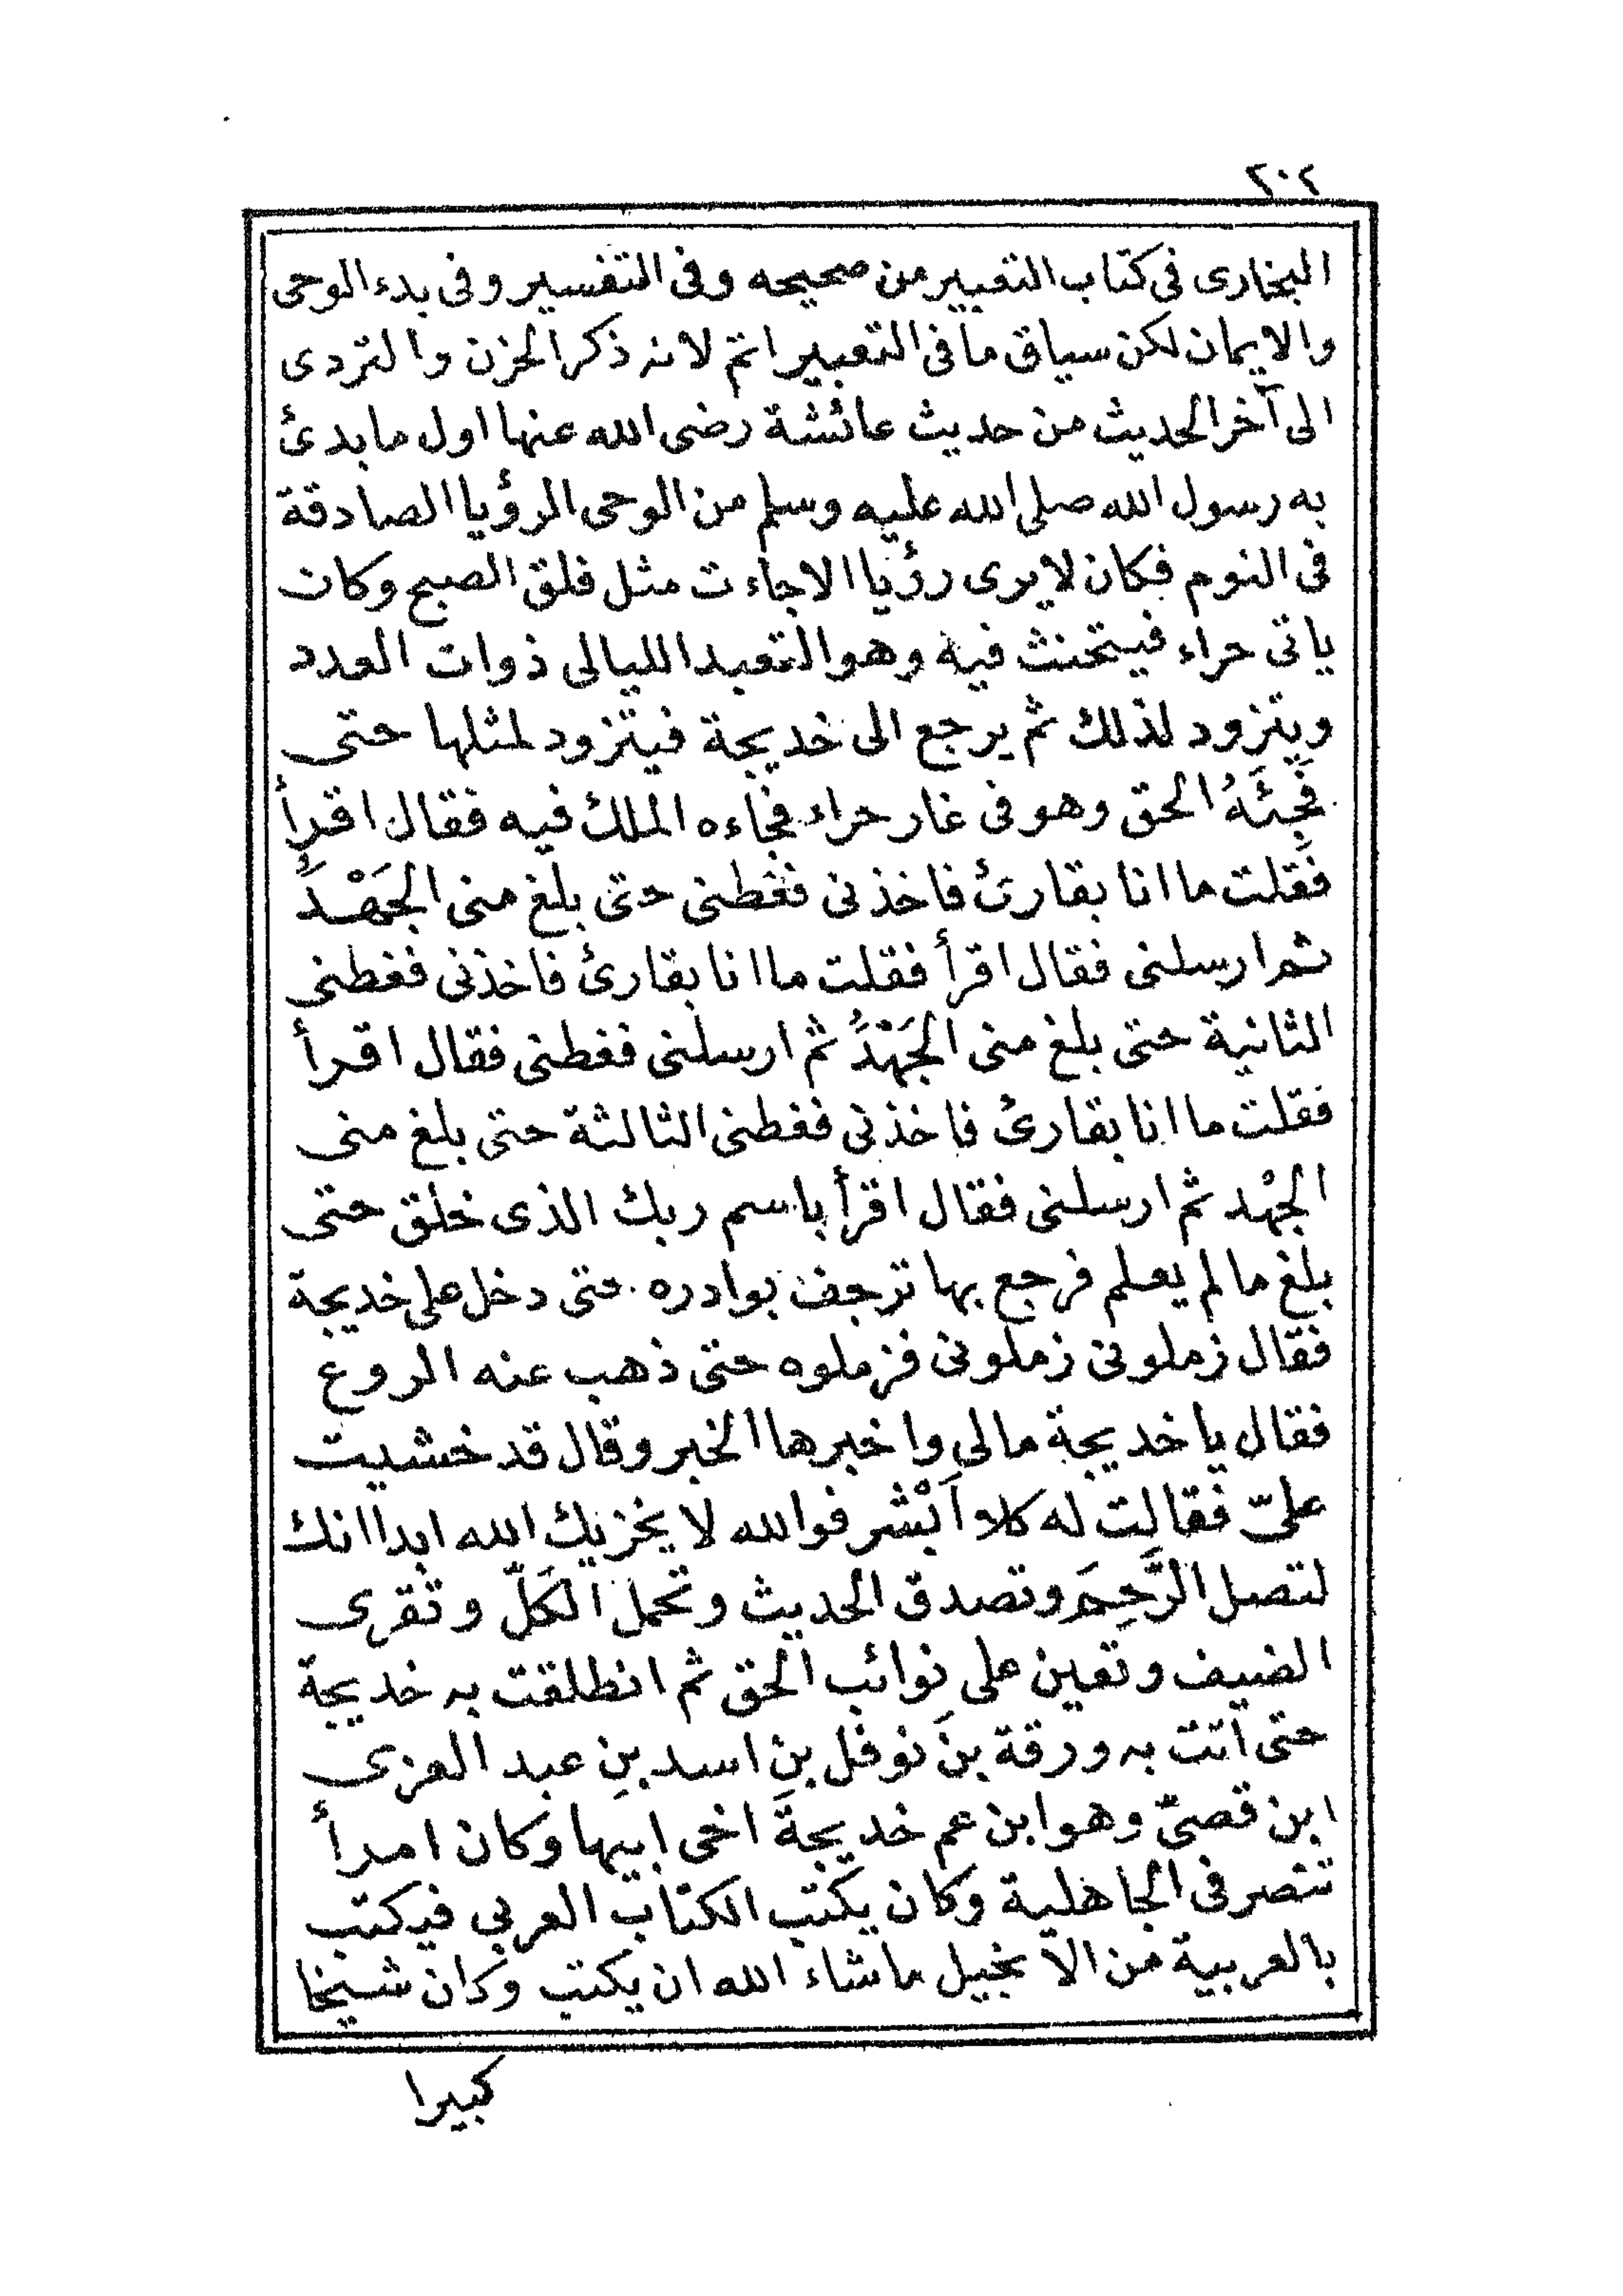 ٢٠٤
البخارى فى كتاب التعبير من صحيحه وفى التفسير وفى بدء الوحى
والايمان لكن سياق ما فى التعبير اتم لانه ذكر الحزن والتردى
الى آخر الحديث من حديث عائشة رضى الله عنها اول ما بدئ
به رسول الله صلى الله عليه وسلم من الوحى الرؤيا الصادقة
فى النوم فكان لا يرى رؤيا الا جاءت مثل فلق الصبح وكان
ياتى حراء فيتحنث فيه وهو التعبد الليالى ذوات العدد
ويتزود لذلك ثم يرجع الى خديجة فيتزود لمثلها حتى
فَجِئَهُ الحق وهو فى غار حراء فجاءه الملك فيه فقال اقرأ
فقلت ما انا بقارئ فاخذنى فغطنى حتى بلغ منى الجَهْدَُ
ثم ارسلنى فقال اقرأ فقلت ما انا بقارئ فاخذنى فغطنى
الثانية حتى بلغ منى الجَهْدَُ ثم ارسلنى فغطنى فقال اقرأ
فقلت ما انا بقارئ فاخذنى فغطنى الثالثة حتى بلغ منى
الجهْد ثم ارسلنى فقال اقرأ باسم ربك الذى خلق حتى
بلغ ما لم يعلم فرجع بها ترجف بوادره حتى دخل على خديجة
فقال زملونى زملونى فزملوه حتى ذهب عنه الروع
فقال يا خديجة مالى واخبرها الخبر وقال قد خشيت
علىّ فقالت له كلا اَبْشر فوالله لا يخزيك الله ابدا انك
لتصل الرَّحِمَ وتصدق الحديث وتحمل الكَلّ وتقرى
الضيف وتعين على نوائب الحق ثم انطلقت به خديجة
حتى اتت به ورقة بنَ نوفل بن اسد بنِ عبد العزى
ابن قصىّ وهو ابن عم خديجةَ اخى ابيها وكان امرأ
تنصر فى الجاهلية وكان يكتب الكتاب العربي فيكتب
بالعربية من الانجيل ما شاء الله ان يكتب وكان شيخا
كبيرا